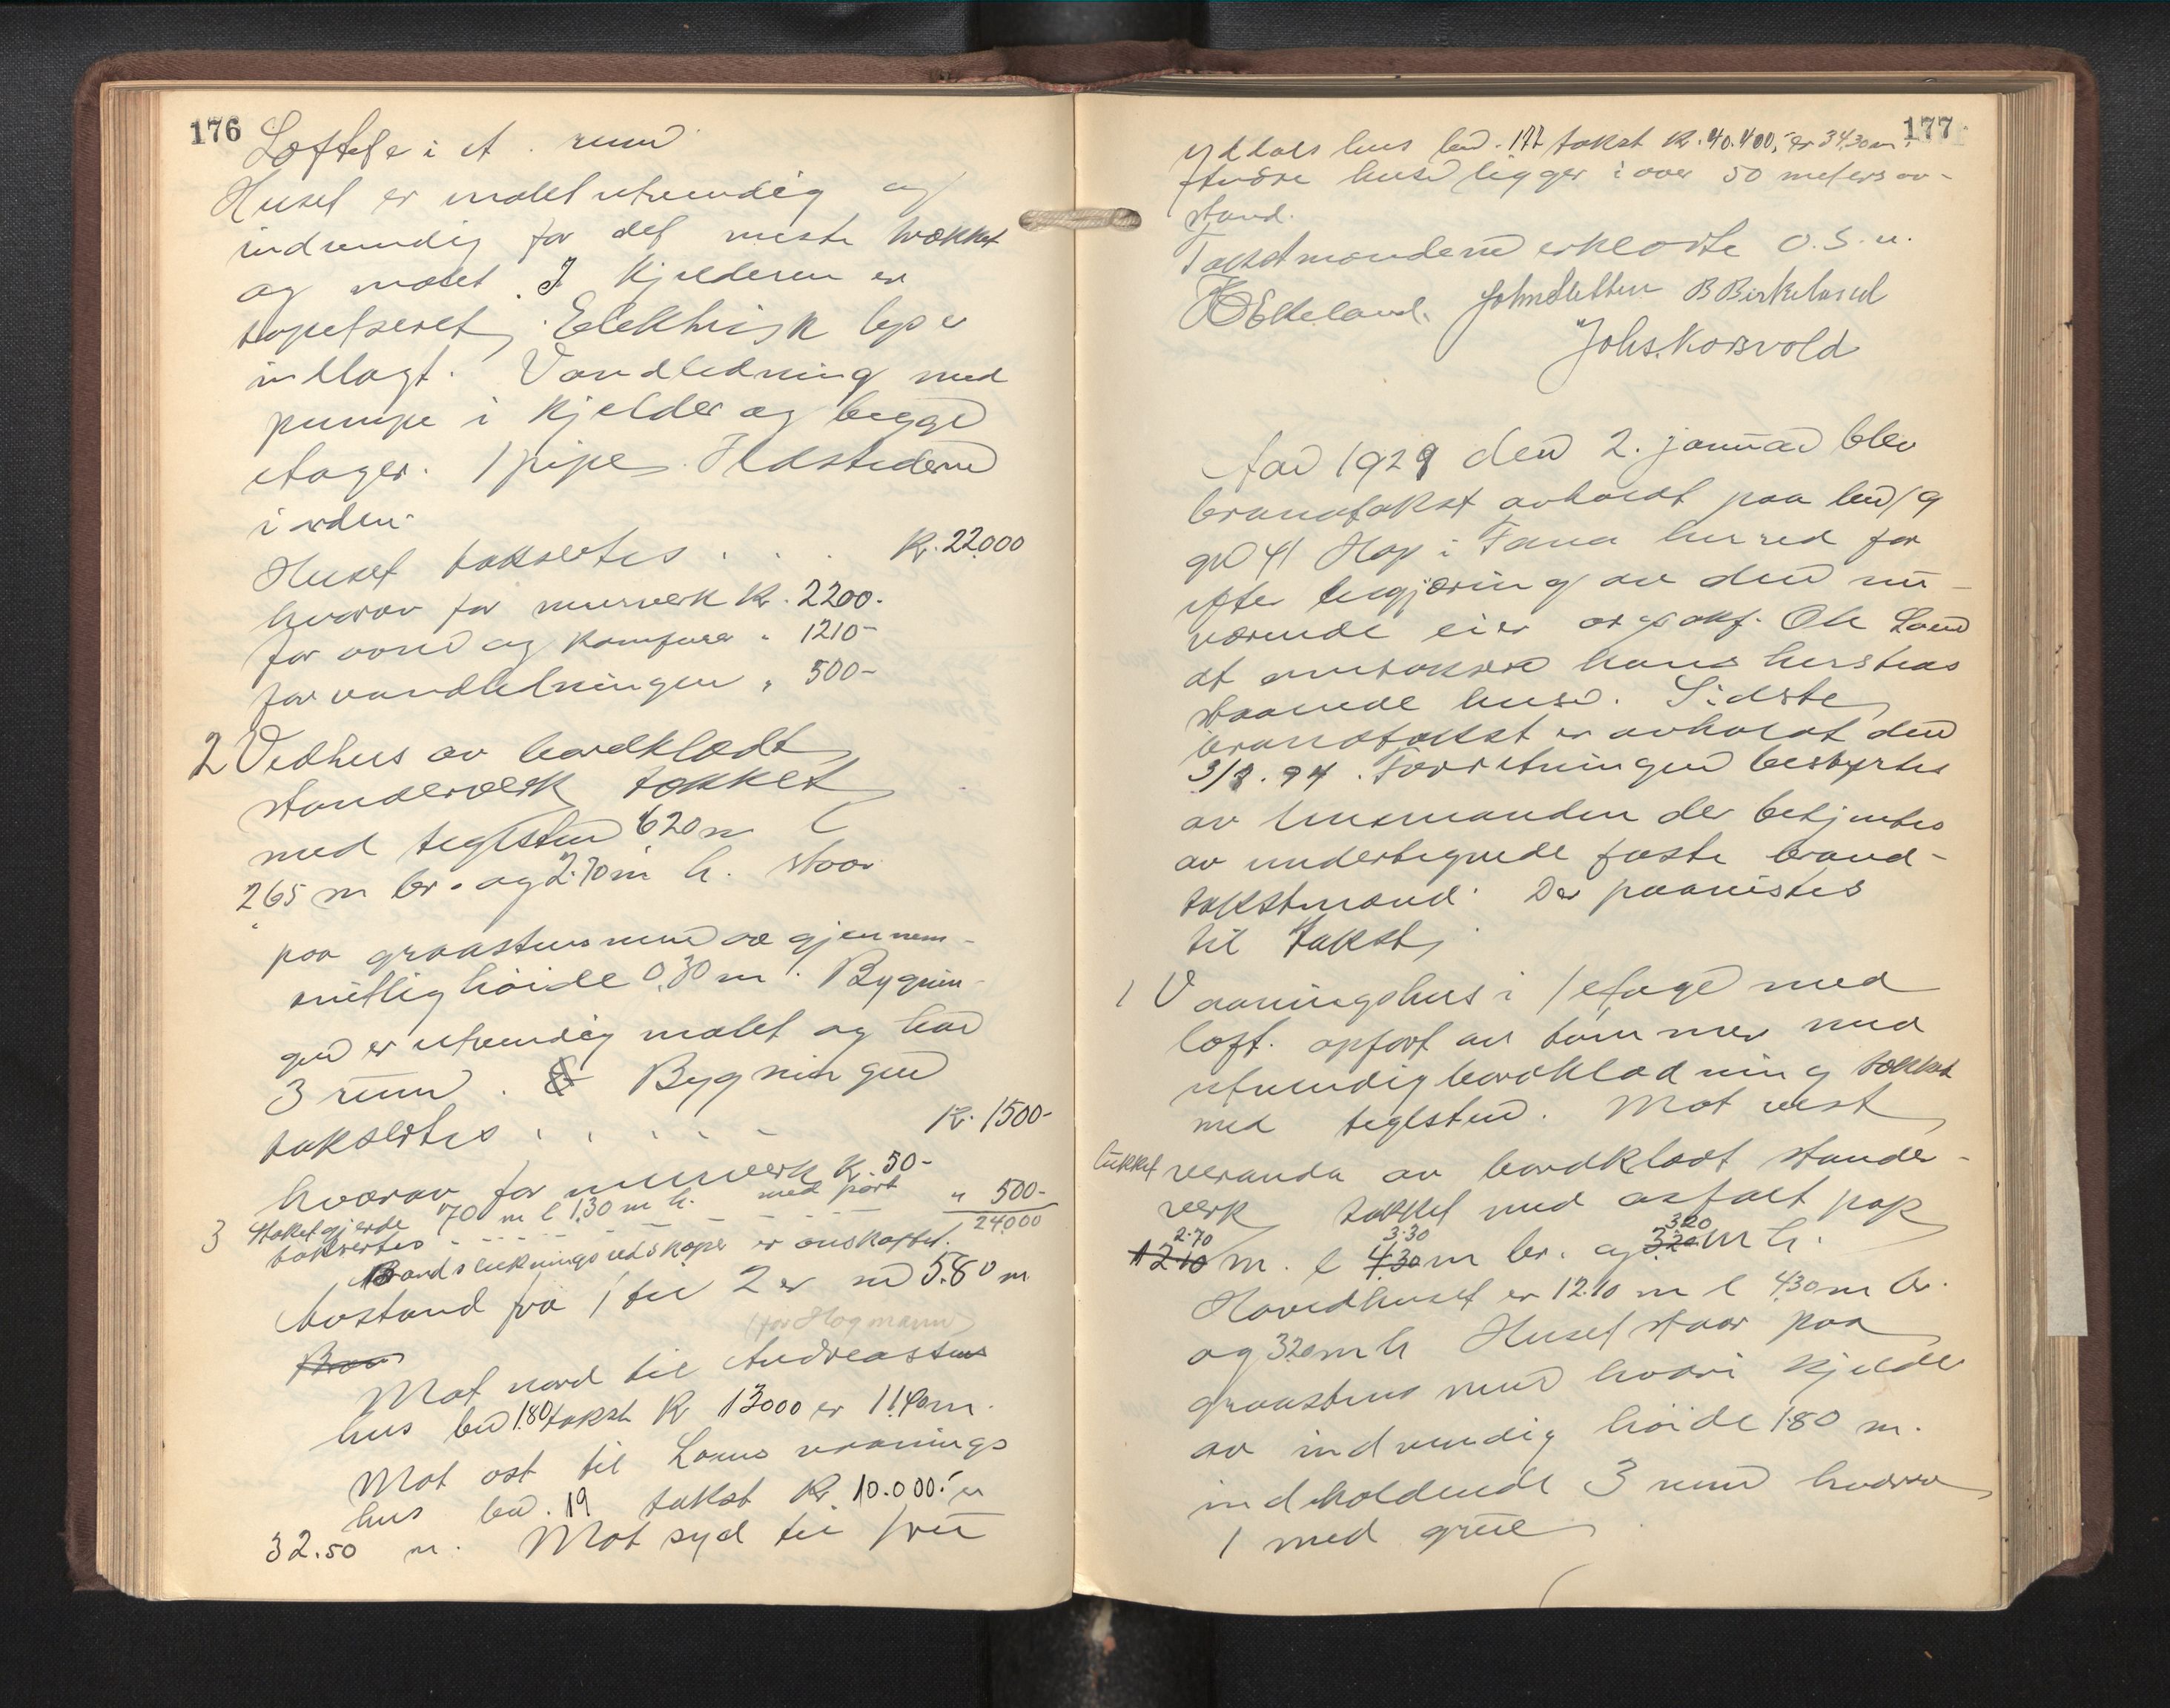 176
Loftet i et rum
Huset er malet utvendig og
indvendig for det meste trækket
og malet. I kjelderen er
Elektrisk lys er
indlagt. Vandledning med
pumpe i kjelder og begge
etager. 1 pipe. Ildstederne
i orden.
Huset takseres . . . Kr. 22000
hvorav for murverk Kr. 2200.
for ovne og komfurer " 1210-
for vandledningen " 500-
2 Vedhus av bordklædt
standerverk tækket
med teglsten 620 m l
265 m br. og 2.70 m h. staar
paa graastensmur av gjennem-
snitlig høide 0.30 m. Bygnin-
gen er utvendig malet og har
3 rum. Bygningen
takseres . . . . . Kr. 1500-
hvorav for murverk K. 50-
3 Staketgjerde 70 m l 1.30 m h. med port
takseres - - - - - " 500-
24000
Brandslukningsredskaper er anskaffet.
Avstand fra 1 til 2 er 5.80 m
(for Hogmann)
Mot nord til Andreassens
hus bn 180 takst K 13000 er 11.40 m.
Mot øst til Launs vaanings
hus bn. 19 takst Kr. 10.000.- er
32.50 m. Mot syd til fru
177
Yddals hus bn. 177 takst Kr. 40.400,- er 34.30 m.
Andre huse ligger i over 50 meters av-
stand.
Takstmændene erklærte O.S.U.
Ekeland. John Sletten B Birkeland
Johs. Korsvold
Aar 1929 den 2. januar blev
brandtakst avholdt paa bn 19
gn 41 Hop i Fana herred for
efter begjæring av den nu-
værende eier Ole Laun
at omtaksere hans hersteds
staaende huse. Sidste
brandtakst er avholdt den
3/8.94. Forretningen bestyrtes
av lensmanden der betjentes
av undertegnede faste brand-
takstmænd. Der paavistes
til takst;
1 Vaaningshus i 1 etage med
loft. opført av tømmer med
utvendig bordklædning tækket
med teglsten. Mot vest
lukket veranda av bordklædt stander-
verk tækket med asfalt pap
2.70 3.30 320
12.10 m. l 4.30 m br. og 3.20 m h.
Hovedhuset er 12.10 m l 4.30 m br.
og 3.20 m h Huset staar paa
graastens mur hvori kjelder
av indvendig høide 1.80 m.
indholdende 3 rum hvorav
1 med grue